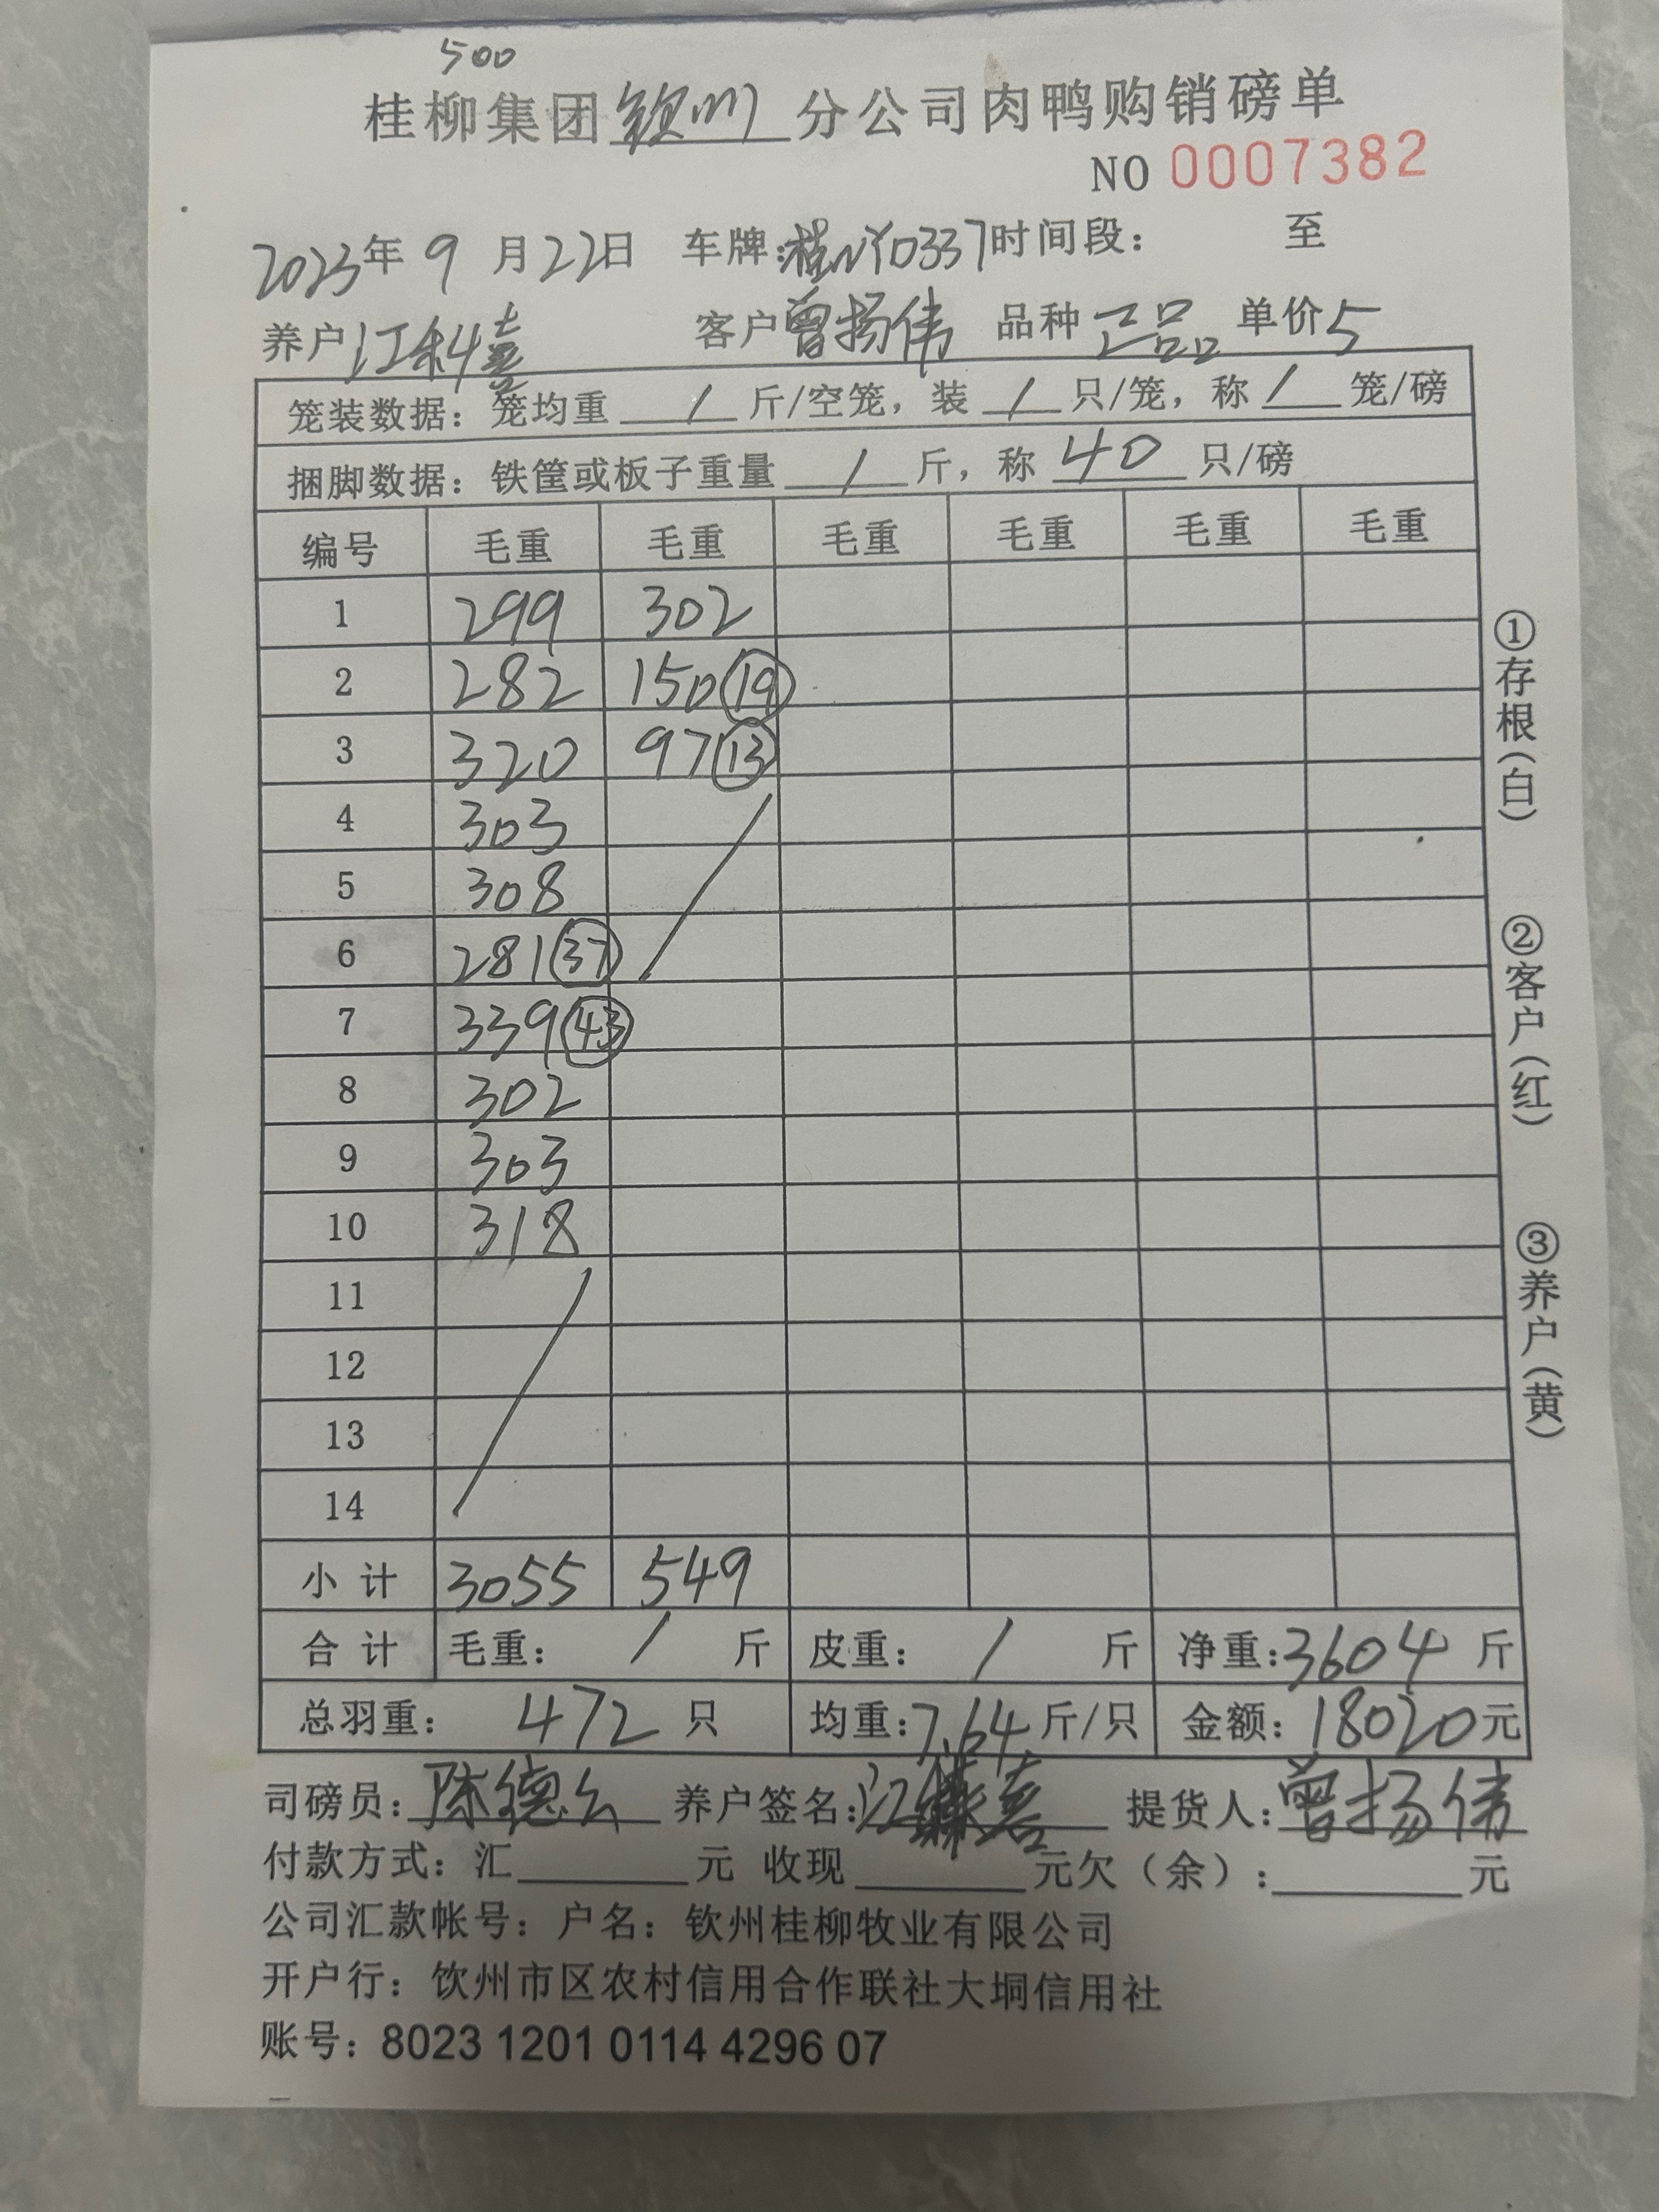 500
桂柳集团钦州分公司肉鸭购销磅单
NO 0007382
2023年 9 月22日 车牌:桂NY0337时间段: 至
养户 江科喜 客户 曾扬伟 品种 正品 单价5
笼装数据: 笼均重 / 斤/空笼, 装 / 只/笼, 称 / 笼/磅
捆脚数据: 铁筐或板子重量 / 斤, 称 40 只/磅
编号 毛重 毛重 毛重 毛重 毛重 毛重
1 299 302
2 282 150 19
3 320 97 13
4 303
5 308
6 281 37
7 339 43
8 302
9 303
10 318
11
12
13
14
小计 3055 549
合计 毛重: / 斤 皮重: / 斤 净重:3604 斤
总羽重: 472 只 均重:7.64 斤/只 金额: 18020元
司磅员: 陈德 养户签名: 江 喜 提货人: 曾扬伟
付款方式: 汇 元 收现 元欠(余): 元
公司汇款帐号: 户名: 钦州桂柳牧业有限公司
开户行: 饮州市区农村信用合作联社大垌信用社
账号: 8023 1201 0114 4296 07
①存根(白)
②客户(红)
③养户(黄)